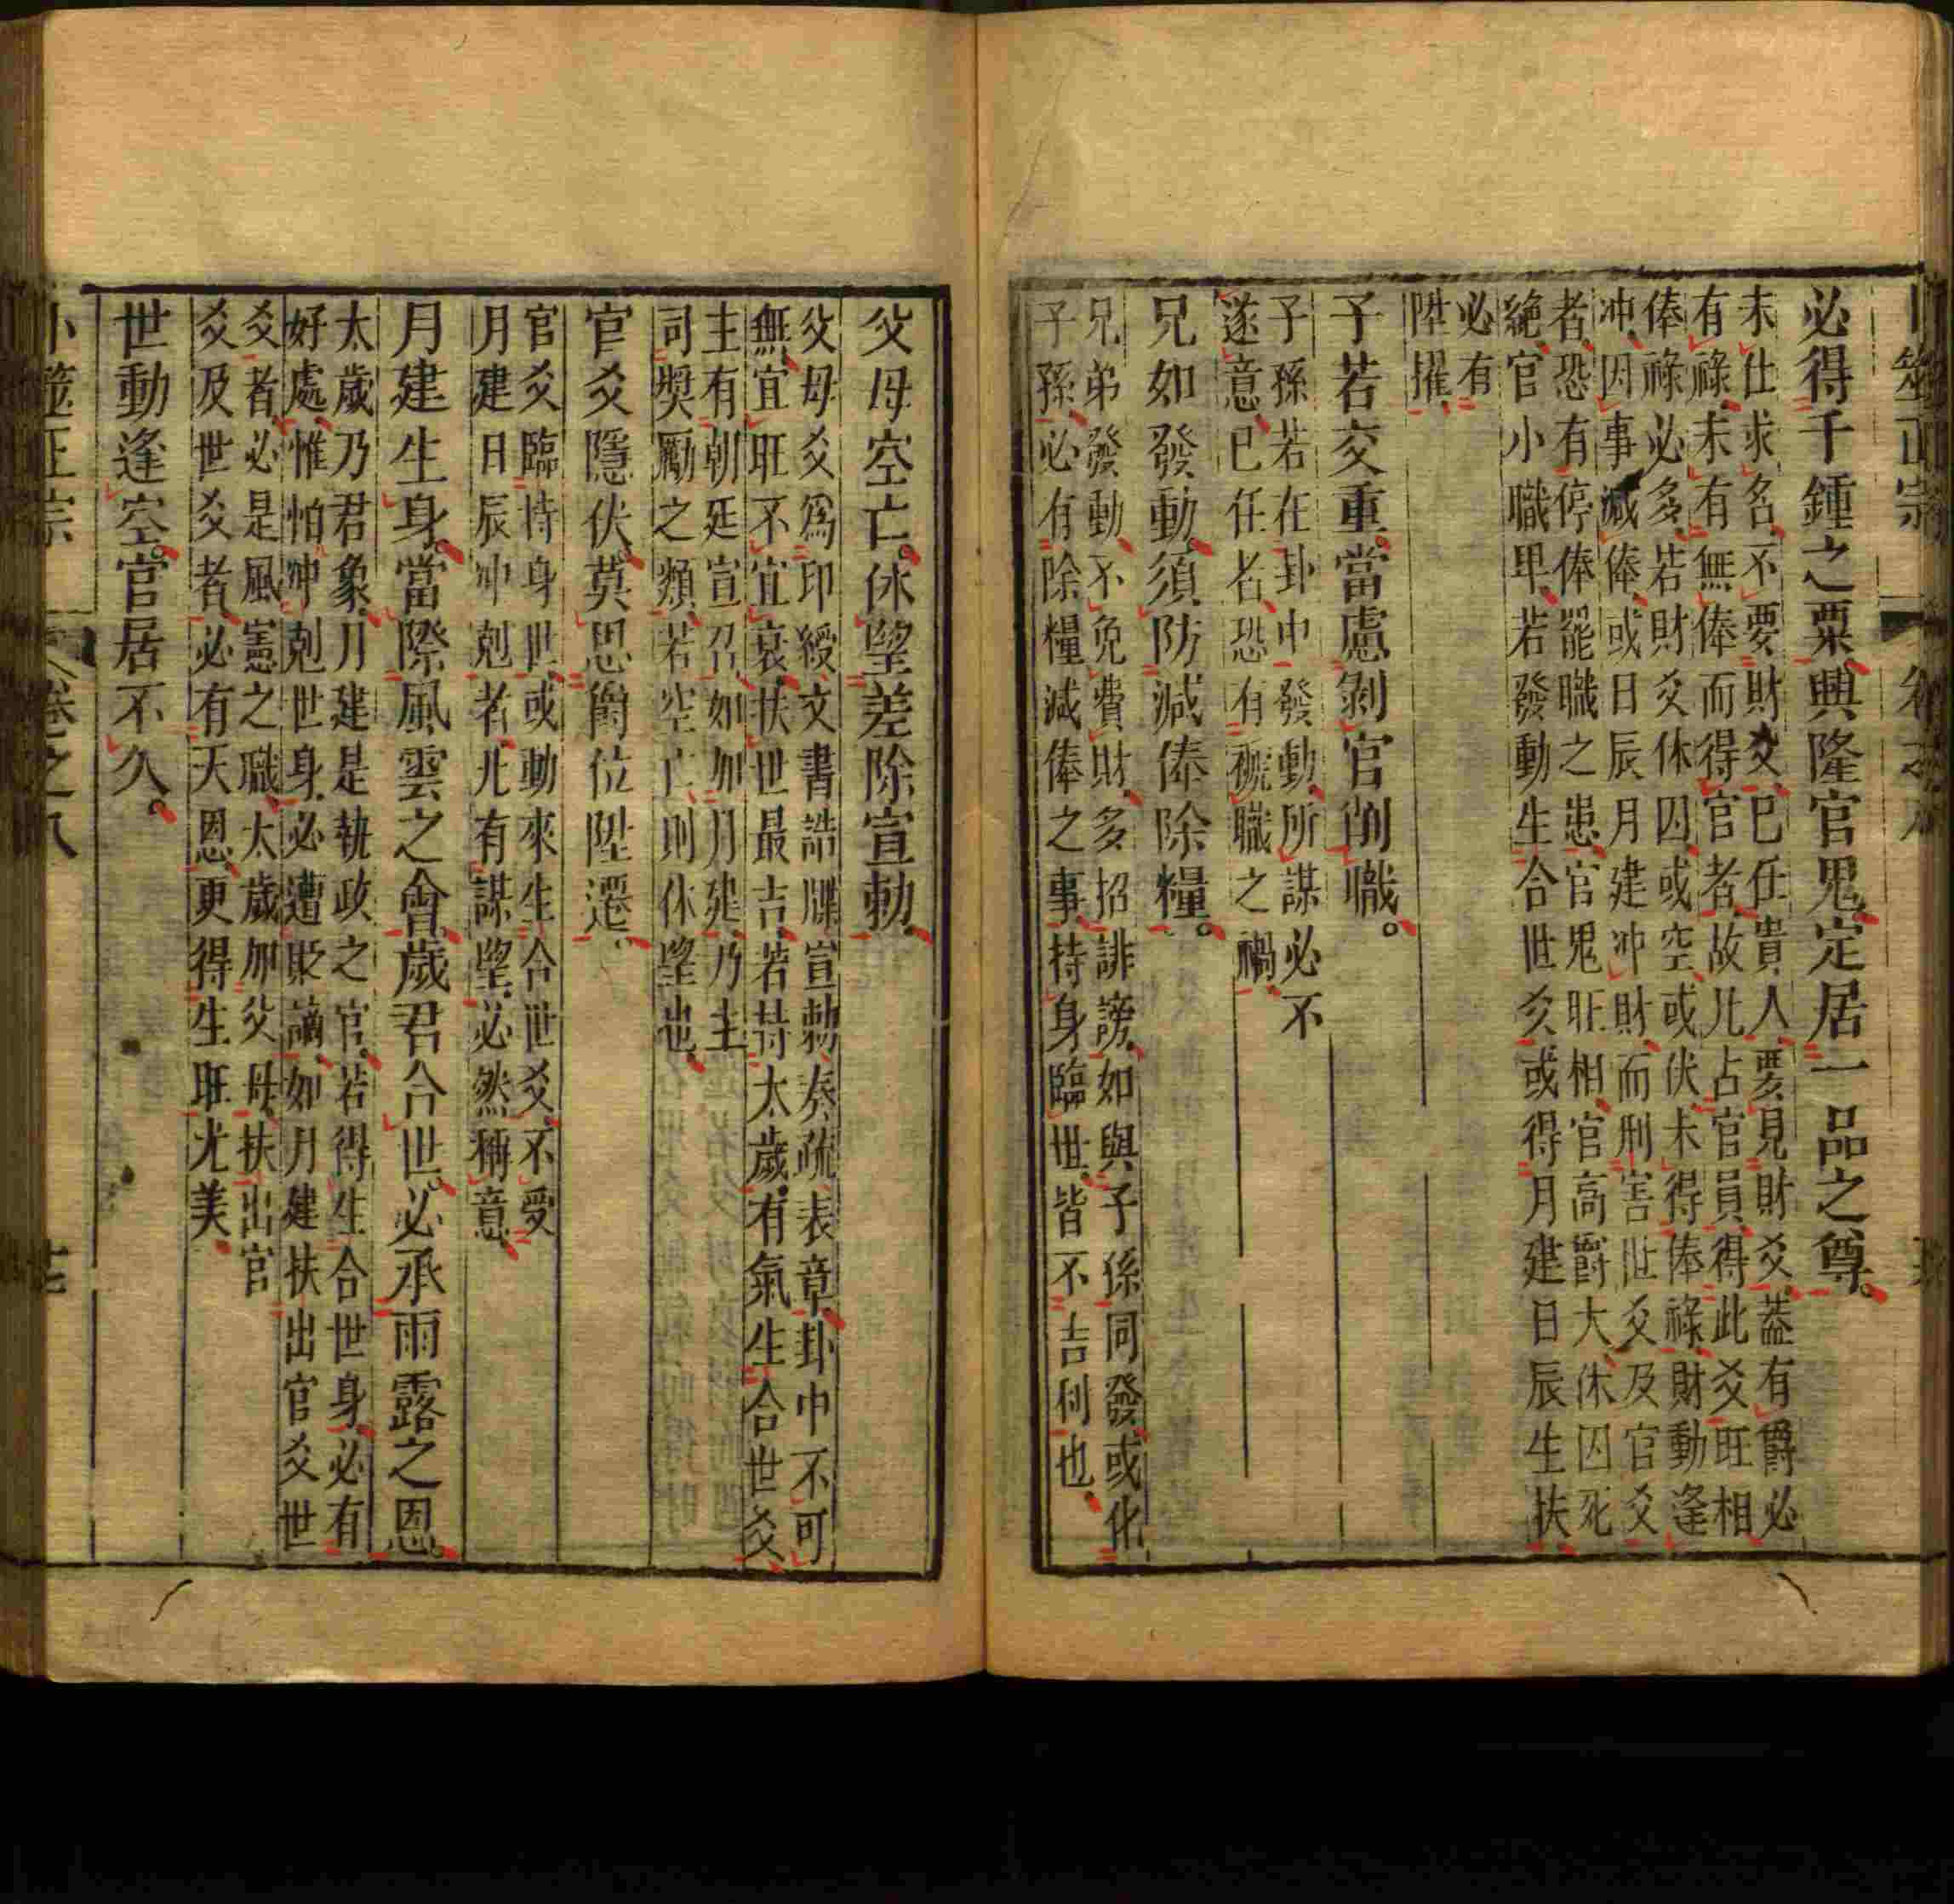 卜筮正宗 卷之八
必得千鍾之粟興隆官鬼定居一品之尊
未仕求名不要財爻已任貴人要見財爻蓋有爵必
有祿未有無俸而得官者故凡占官員得此爻旺相
俸祿必多若財爻休囚或空或伏未得俸祿財動逢
冲因事減俸或日辰月建冲財而刑害世爻及官爻
者恐有停俸罷職之患官鬼旺相官高爵大休囚死
絶官小職卑若發動生合世爻或得月建日辰生扶
必有
陞擢
子若交重當慮剝官削職
子孫若在卦中發動所謀必不
遂意已任者恐有褫職之禍
兄如發動須防減俸除糧
兄弟發動不免費財多招誹謗如與子孫同發或化
子孫必有除糧減俸之事持身臨世皆不吉利也
父母空亡休望差除宣勅
父母爻爲印綬文書誥牒宣勅奏疏表章卦中不可
無宜旺不宜衰扶世最吉若持太歲有氣生合世爻
主有朝廷宣召如加月建乃主
司獎勵之類若空亡則休望也
官爻隱伏莫思爵位陞遷
官爻臨持身世或動來生合世爻不受
月建日辰冲剋者凡有謀望必然稱意
月建生身當際風雲之會歲君合世必承雨露之恩
太歲乃君象月建是執政之官若得生合世身必有
好處惟怕冲剋世身必遭貶謫如月建扶出官爻世
爻者必是風憲之職太歲加父母扶出官
爻及世爻者必有天恩更得生旺尤美
世動逢空官居不久
卜筮正宗 卷之八